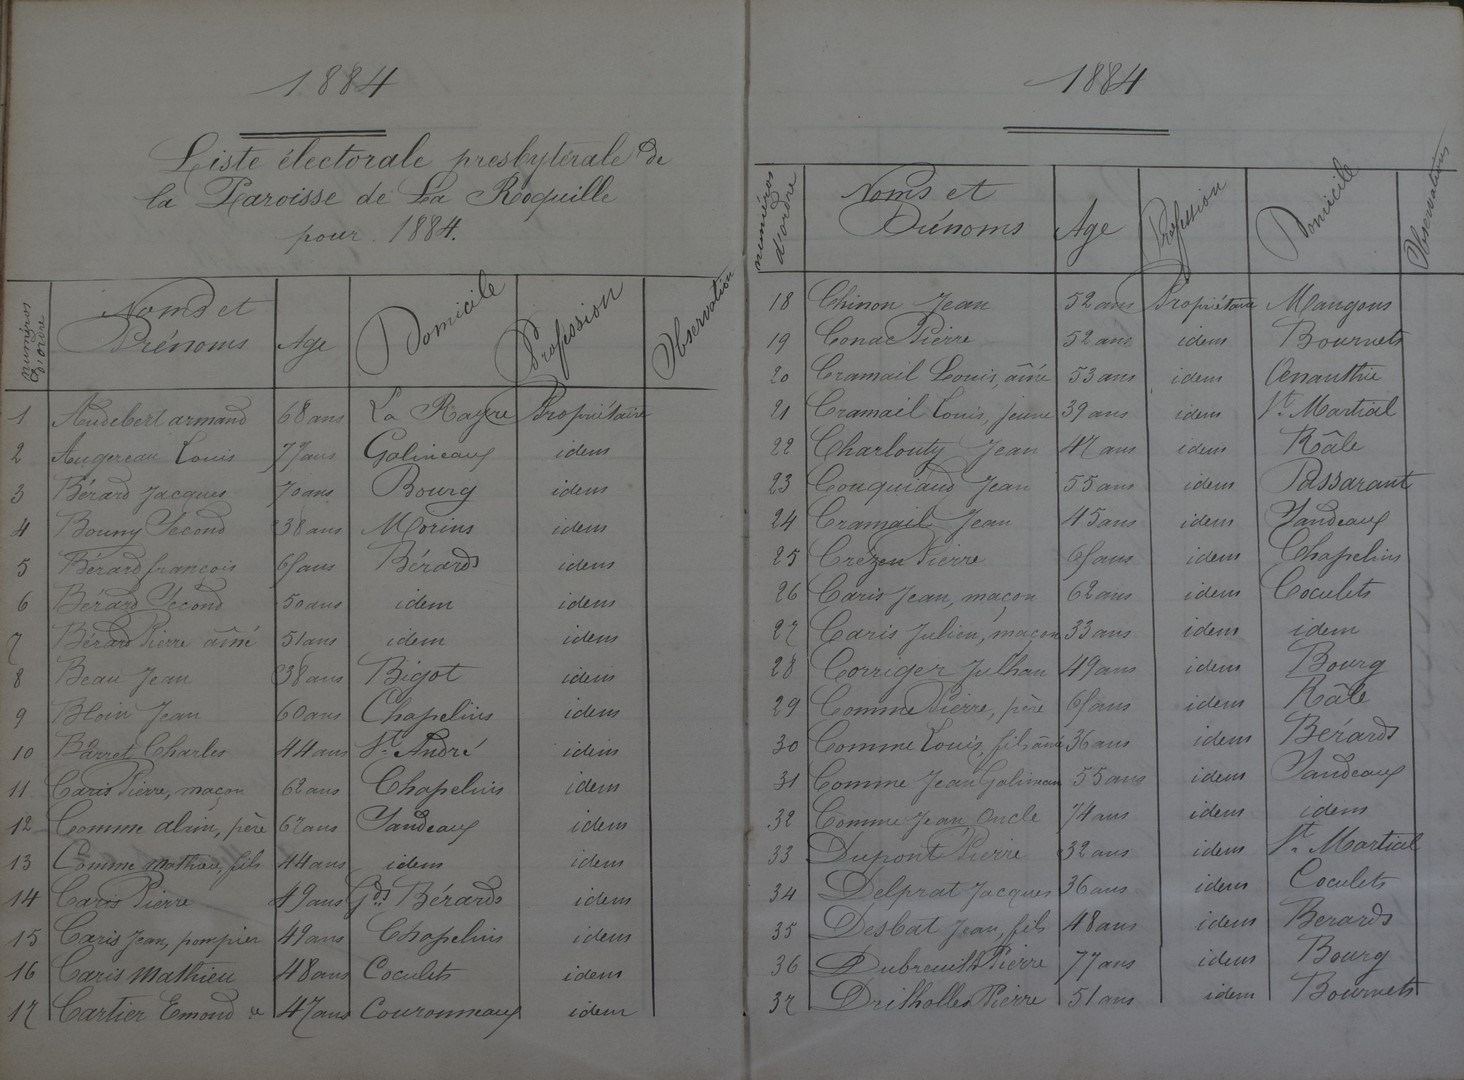 1884
Liste électorale presbytérale de
la Paroisse de La Roquille
pour 1884.
numéros d'ordre Noms et Prénoms Age Domicile Profession Observation
1 Audebert armand 68 ans La Rayre Propriétaire
2 Augereau Louis 77 ans Galineaux idem
3 Bérard Jacques 70 ans Bourg idem
4 Bouny Second 38 ans Morins idem
5 Bérard françois 65 ans Bérards idem
6 Bérard Second 50 ans idem idem
7 Bérard Pierre aîné 51 ans idem idem
8 Beau Jean 38 ans Bigot idem
9 Bloin Jean 60 ans Chapelins idem
10 Barret Charles 44 ans St. André idem
11 Caris Pierre, maçon 62 ans Chapelins idem
12 Comme alain, père 67 ans Jandeaux idem
13 Comme Mathieu, fils 44 ans idem idem
14 Caris Pierre 49 ans Gds Bérards idem
15 Caris Jean, pompier 49 ans Chapelins idem
16 Caris Mathieu 48 ans Coculets idem
17 Cartier Emond 47 ans Couronneaux idem
1884
numéros d'ordre Noms et Prénoms Age Profession Domicile Observations
18 Chinon Jean 52 ans Propriétaire Mangons
19 Conac Pierre 52 ans idem Bournets
20 Cramail Louis, aîné 53 ans idem
21 Cramail Louis, jeune 39 ans idem St. Martial
22 Charlouty Jean 47 ans idem Râle
23 Couquiaud Jean 55 ans idem Passarant
24 Cramail Jean 45 ans idem Jandeaux
25 Crezen Pierre 65 ans idem Chapelins
26 Caris Jean, maçon 62 ans idem Coculets
27 Caris Julien, maçon 33 ans idem idem
28 Corriger Julhan 49 ans idem Bourg
29 Comme Pierre, père 65 ans idem Râle
30 Comme Louis, fils aîné 36 ans idem Bérards
31 Comme Jean Galineau 55 ans idem Jandeaux
32 Comme Jean Oncle 74 ans idem idem
33 Dupont Pierre 32 ans idem St. Martial
34 Delprat Jacques 36 ans idem Coculets
35 Desbat Jean, fils 48 ans idem Berards
36 Dubreuilh Pierre 77 ans idem Bourg
37 Drilholle Pierre 51 ans idem Bournets